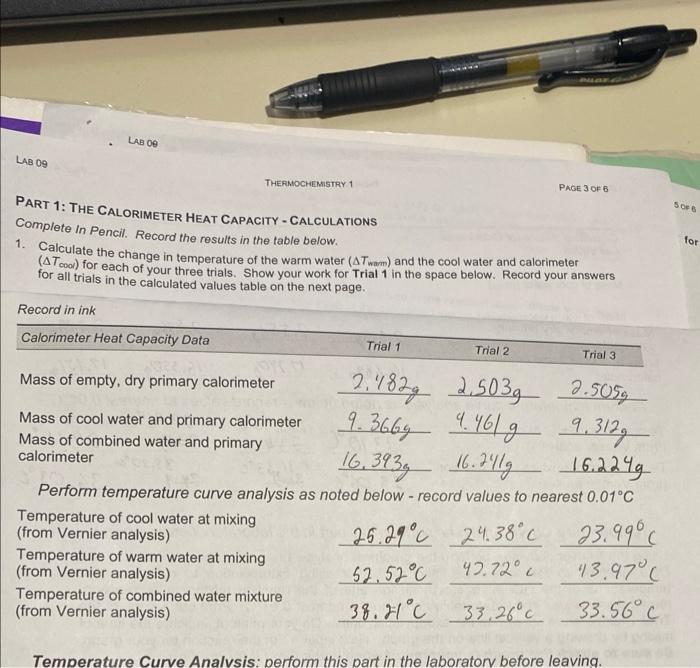 PILOT
LAB 09
LAB 09
THERMOCHEMISTRY 1
PAGE 3 OF 6
5 OF 6
PART 1: THE CALORIMETER HEAT CAPACITY - CALCULATIONS
Complete In Pencil. Record the results in the table below.
for
1. Calculate the change in temperature of the warm water (ΔTwarm) and the cool water and calorimeter
(ΔTcool) for each of your three trials. Show your work for Trial 1 in the space below. Record your answers
for all trials in the calculated values table on the next page.
Record in ink
Calorimeter Heat Capacity Data Trial 1 Trial 2 Trial 3
Mass of empty, dry primary calorimeter 2.482g 2.503g 2.505g
Mass of cool water and primary calorimeter 9.366g 9.461g 9.312g
Mass of combined water and primary
calorimeter 16.393g 16.241g 16.224g
Perform temperature curve analysis as noted below - record values to nearest 0.01°C
Temperature of cool water at mixing
(from Vernier analysis) 25.29°C 24.38°C 23.99°C
Temperature of warm water at mixing
(from Vernier analysis) 52.52°C 42.72°C 43.97°C
Temperature of combined water mixture
(from Vernier analysis) 38.21°C 33.26°C 33.56°C
Temperature Curve Analysis: perform this part in the laboratory before leaving.